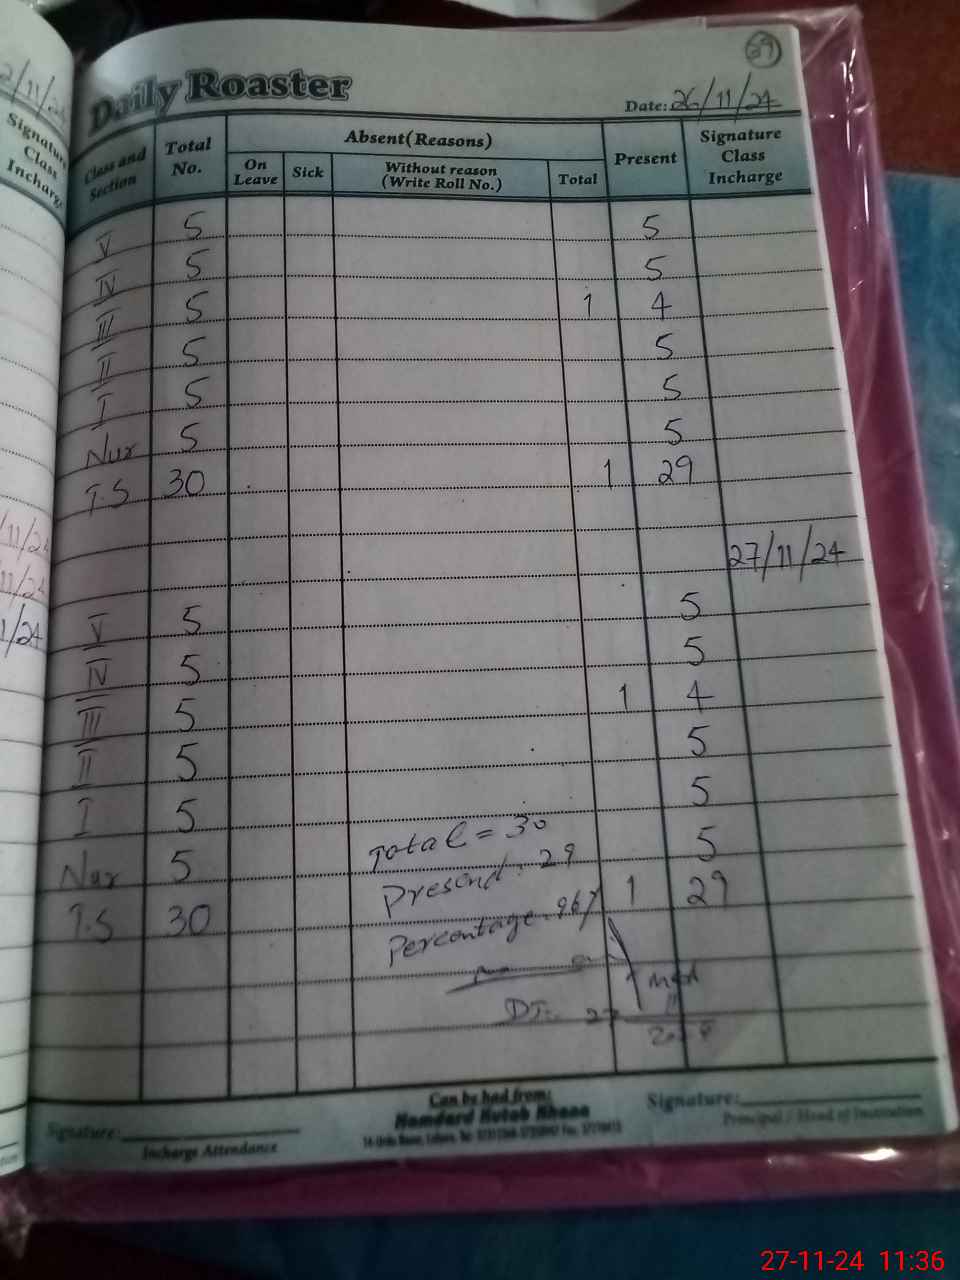 2/11/24
Signature
Class
Incharge
/11/24
/11/24
1/24
29
Daily Roaster
Date: 26/11/24
Class and Section Total No. Absent(Reasons) Present Signature Class Incharge
On Leave Sick Without reason (Write Roll No.) Total
V 5 5
IV 5 5
III 5 1 4
II 5 5
I 5 5
Nur 5 5
T.S 30 1 29
27/11/24
V 5 5
IV 5 5
III 5 1 4
II 5 5
I 5 5
Nur 5 5
T.S 30 1 29
Total = 30
Presend: 29
Percentage. 96%
DT:
Can be had from:
Hamdard Kutab Khana
Signature:
Incharge Attendance
Signature:
Principal / Head of Institution
27-11-24 11:36